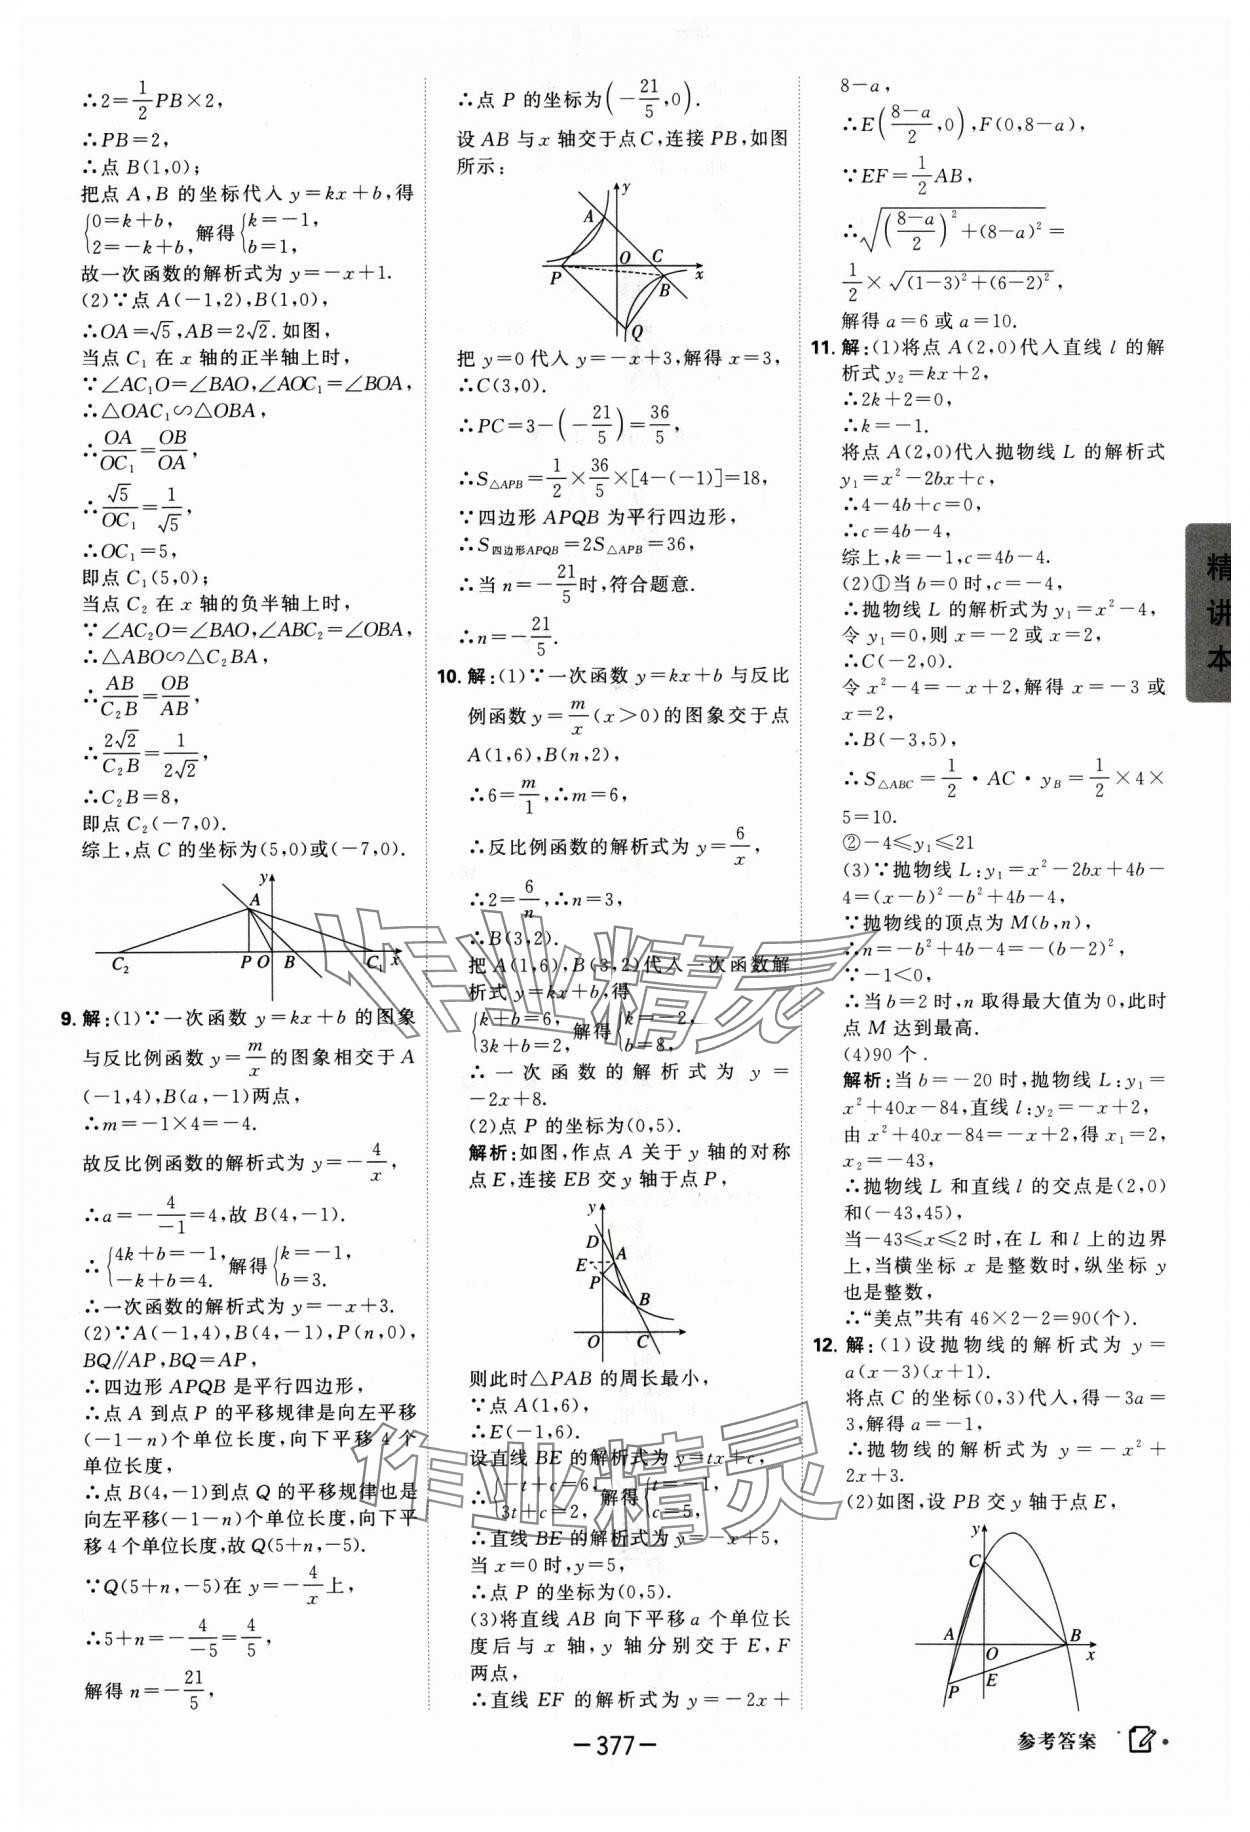 ∴2=1/2 PB×2,
∴PB=2,
∴点 B(1,0);
把点 A,B 的坐标代入 y=kx+b,得
{0=k+b, 2=-k+b, 解得{k=-1, b=1,
故一次函数的解析式为 y=-x+1.
(2)∵点 A(-1,2),B(1,0),
∴OA=√5,AB=2√2.如图,
当点 C₁ 在 x 轴的正半轴上时,
∵∠AC₁O=∠BAO,∠AOC₁=∠BOA,
∴△OAC₁∽△OBA,
∴OA/OC₁=OB/OA,
∴√5/OC₁=1/√5,
∴OC₁=5,
即点 C₁(5,0);
当点 C₂ 在 x 轴的负半轴上时,
∵∠AC₂O=∠BAO,∠ABC₂=∠OBA,
∴△ABO∽△C₂BA,
∴AB/C₂B=OB/AB,
∴2√2/C₂B=1/2√2,
∴C₂B=8,
即点 C₂(-7,0).
综上,点 C 的坐标为(5,0)或(-7,0).
y
A
C₂ P O B C₁ x
9. 解:(1)∵一次函数 y=kx+b 的图象
与反比例函数 y=m/x的图象相交于 A
(-1,4),B(a,-1)两点,
∴m=-1×4=-4.
故反比例函数的解析式为 y=-4/x,
∴a=-4/-1=4,故 B(4,-1).
∴{4k+b=-1, -k+b=4. 解得{k=-1, b=3.
∴一次函数的解析式为 y=-x+3.
(2)∵A(-1,4),B(4,-1),P(n,0),
BQ∥AP,BQ=AP,
∴四边形 APQB 是平行四边形,
∴点 A 到点 P 的平移规律是向左平移
(-1-n)个单位长度,向下平移 4 个
单位长度,
∴点 B(4,-1)到点 Q 的平移规律也是
向左平移(-1-n)个单位长度,向下平
移 4 个单位长度,故 Q(5+n,-5).
∵Q(5+n,-5)在 y=-4/x上,
∴5+n=-4/-5=4/5,
解得 n=-21/5,
∴点 P 的坐标为(-21/5,0).
设 AB 与 x 轴交于点 C,连接 PB,如图
所示:
y
A
O C
P x
B
Q
把 y=0 代入 y=-x+3,解得 x=3,
∴C(3,0).
∴PC=3-(-21/5)=36/5,
∴S△APB=1/2×36/5×[4-(-1)]=18,
∵四边形 APQB 为平行四边形,
∴S四边形APQB=2S△APB=36,
∴当 n=-21/5时,符合题意.
∴n=-21/5.
10. 解:(1)∵一次函数 y=kx+b 与反比
例函数 y=m/x(x>0)的图象交于点
A(1,6),B(n,2),
∴6=m/1,∴m=6,
∴反比例函数的解析式为 y=6/x,
∴2=6/n,∴n=3,
∴B(3,2).
把 A(1,6),B(3,2)代入一次函数解
析式 y=kx+b,得
{k+b=6, 3k+b=2, 解得{k=-2, b=8,
∴一次函数的解析式为 y=
-2x+8.
(2)点 P 的坐标为(0,5).
解析:如图,作点 A 关于 y 轴的对称
点 E,连接 EB 交 y 轴于点 P,
y
D
E A
P
B
O C x
则此时△PAB 的周长最小,
∵点 A(1,6),
∴E(-1,6).
设直线 BE 的解析式为 y=tx+c,
∴{-t+c=6, 3t+c=2, 解得{t=-1, c=5,
∴直线 BE 的解析式为 y=-x+5,
当 x=0 时,y=5,
∴点 P 的坐标为(0,5).
(3)将直线 AB 向下平移 a 个单位长
度后与 x 轴,y 轴分别交于 E,F
两点,
∴直线 EF 的解析式为 y=-2x+
8-a,
∴E(8-a/2,0),F(0,8-a),
∵EF=1/2AB,
∴√((8-a/2)²+(8-a)²)=
1/2×√((1-3)²+(6-2)²),
解得 a=6 或 a=10.
11. 解:(1)将点 A(2,0)代入直线 l 的解
析式 y₂=kx+2,
∴2k+2=0,
∴k=-1.
将点 A(2,0)代入抛物线 L 的解析式
y₁=x²-2bx+c,
∴4-4b+c=0,
∴c=4b-4,
综上,k=-1,c=4b-4.
(2)①当 b=0 时,c=-4,
∴抛物线 L 的解析式为 y₁=x²-4,
令 y₁=0,则 x=-2 或 x=2,
∴C(-2,0).
令 x²-4=-x+2,解得 x=-3 或
x=2,
∴B(-3,5),
∴S△ABC=1/2·AC·yB=1/2×4×
5=10.
②-4≤y₁≤21
(3)∵抛物线 L:y₁=x²-2bx+4b-
4=(x-b)²-b²+4b-4,
∵抛物线的顶点为 M(b,n),
∴n=-b²+4b-4=-(b-2)²,
∵-1<0,
∴当 b=2 时,n 取得最大值为 0,此时
点 M 达到最高.
(4)90 个.
解析:当 b=-20 时,抛物线 L:y₁=
x²+40x-84,直线 l:y₂=-x+2,
由 x²+40x-84=-x+2,得 x₁=2,
x₂=-43,
∴抛物线 L 和直线 l 的交点是(2,0)
和(-43,45),
当-43≤x≤2 时,在 L 和 l 上的边界
上,当横坐标 x 是整数时,纵坐标 y
也是整数,
∴“美点”共有 46×2-2=90(个).
12. 解:(1)设抛物线的解析式为 y=
a(x-3)(x+1).
将点 C 的坐标(0,3)代入,得-3a=
3,解得 a=-1,
∴抛物线的解析式为 y=-x²+
2x+3.
(2)如图,设 PB 交 y 轴于点 E,
y
C
A B
O x
P E
精讲本
作业精灵
作业精灵
-377-
参考答案